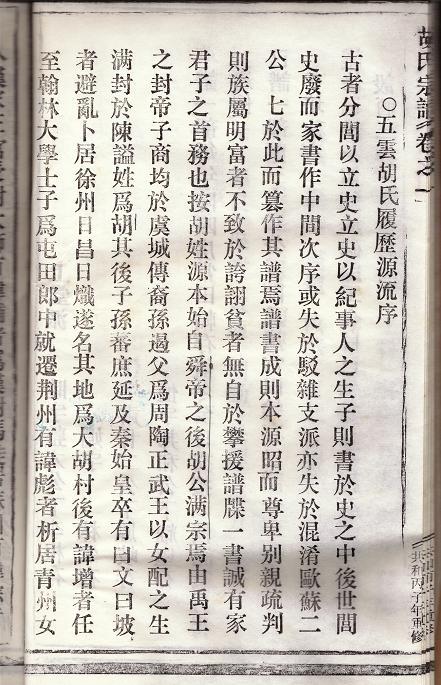 胡氏宗譜卷之一
〇五雲胡氏履歷源流序
古者分閭以立史立史以紀事人之生子則書於史之中後世閭
史廢而家書作中間次序或失於駁雜支派亦失於混淆歐蘇二
公 七於此而篡作其譜焉譜書成則本源昭而尊卑别親疏判
則族屬明富者不致於誇詡貧者無自於攀援譜牒一書誠有家
君子之首務也按胡姓源本始自舜帝之後胡公满宗焉由禹王
之封帝子商均於虞城傳裔孫遏父爲周陶正武王以女配之生
满封於陳謚姓爲胡其後子孫畨庶延及秦始皇卒有曰文曰坡
者避亂卜居徐州日昌日熾遂名其地爲大胡村後有諱增者任
至翰林大學士子爲屯田郎中就遷荆州有諱彪者析居青州女
共和丙子年重修